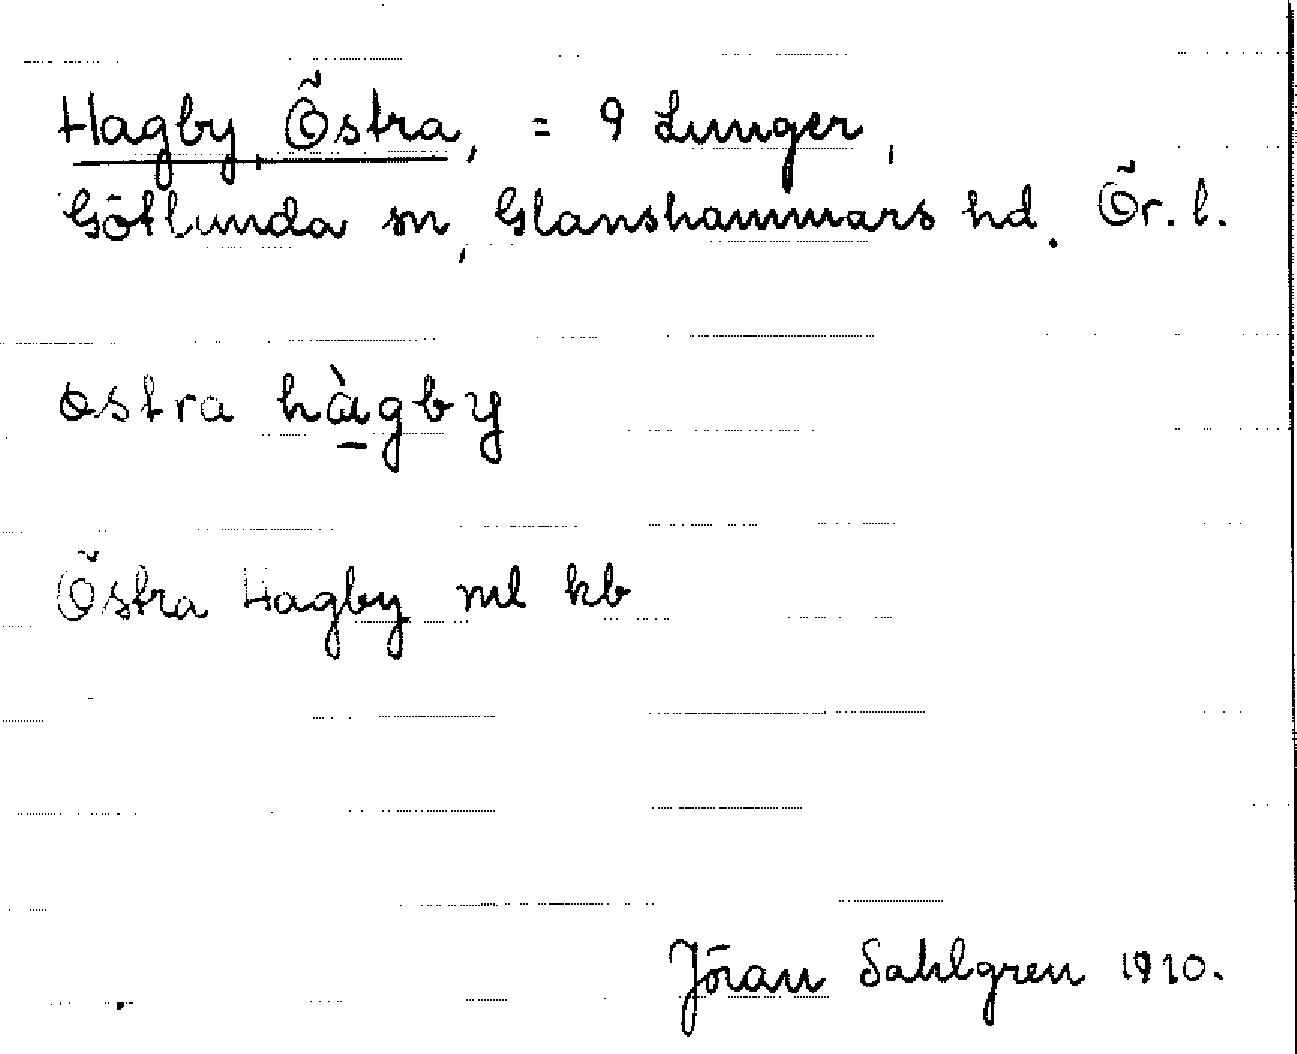 Hagby, Östra, = 9 Lunger,
Götlunda sn, Glanshammars hd. Ör. l.
östra hàgby
Östra Hagby ml kb
Jöran Sahlgren 1920.